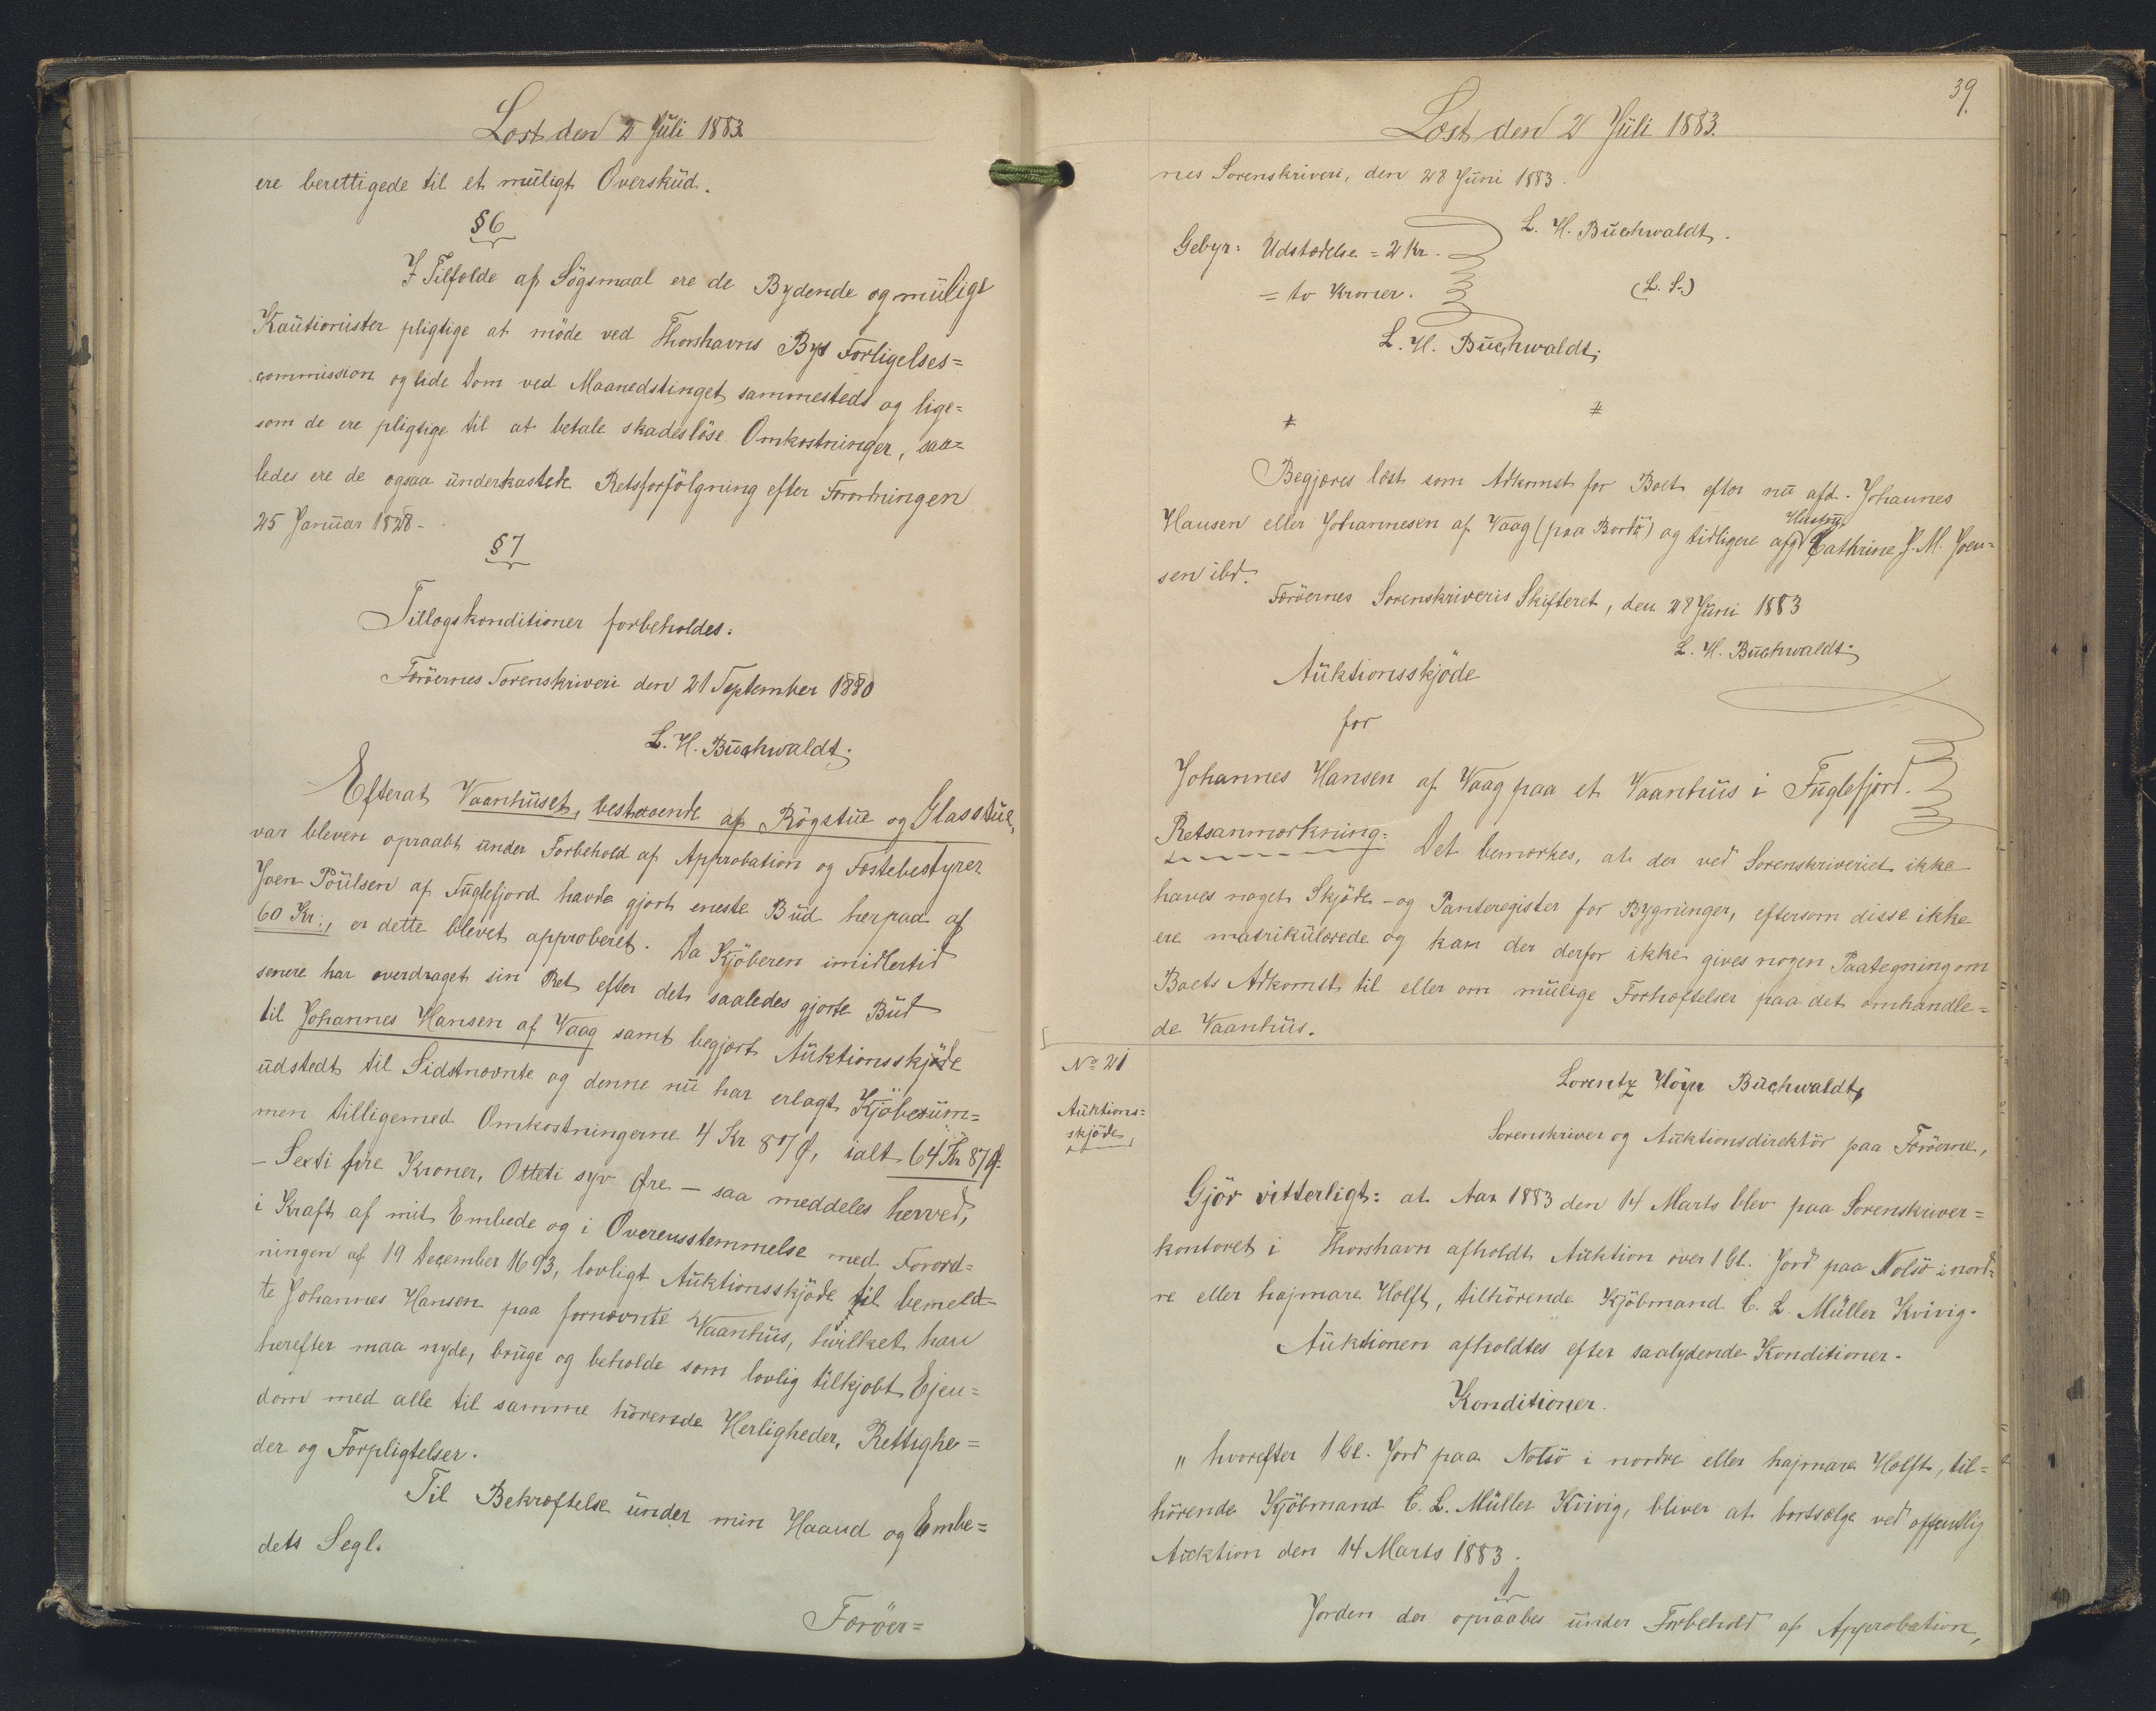 Læst den 2 Juli 1883.
ere berettigede til et muligt Overskud.
§ 6
I Tilfælde af Søgsmaal ere de Bydende og mulige
Kautionister pligtige at møde ved Thorshavns Bys Forligelses=
commission og lide Dom ved Maanedstinget sammesteds og lige=
som de ere pligtige til at betale skadesløse Omkostninger, saa=
ledes ere de ogsaa underkastede Retsforfølgning efter Forordningen
25 Januar 1828.
§ 7
Tillægskonditioner forbeholdes.
Færøernes Sorenskriveri den 21 September 1880
L. H. Buchwaldt.
Efterat Vaanhuset, bestaaende af Røgstue og Glasstue,
var bleven opraabt under Forbehold af Approbation og Fæstebestyrer
Joen Poulsen af Fuglefjord havde gjort eneste Bud herpaa af
60 Kr:, er dette blevet approberet. Da Kjøberen imidlertid
senere har overdraget sin Ret efter det saaledes gjorte Bud
til Johannes Hansen af Vaag samt begjært Auktionsskjøde
udstedt til Sidstnævnte og denne nu har erlagt Kjøbesum=
men tilligemed Omkostningerne 4 Kr 87 Ø, ialt 64 Kr 87 Ø.
– Sexti fire Kroner, Otteti syv Øre – saa meddeles herved,
i Kraft af mit Embede og i Overensstemmelse med Forord=
ningen af 19 December 1693, lovligt Auktionsskjøde til bemeld=
te Johannes Hansen paa fornævnte Vaanhus, hvilket han
herefter maa nyde, bruge og beholde som lovlig tilkjøbt Ejen=
dom med alle til samme hørende Herligheder, Rettighe=
der og Forpligtelser.
Til Bekræftelse under min Haand og Embe=
dets Segl.
Færøer=
39.
Læst den 2 Juli 1883.
nes Sorenskriveri, den 28 Juni 1883.
L. H. Buchwaldt.
Gebyr: Udstædelse = 2 Kr.
= to Kroner.
(L. S.)
L. H. Buchwaldt.
Begjæres læst som Adkomst for Boet efter nu afd. Johannes
Hustru
Hansen eller Johannesen af Vaag (paa Bordø) og tidligere afd Cathrine J. M. Joen=
sen ibd.
Færøernes Sorenskriveris Skifteret, den 28 Juni 1883
L. H. Buchwaldt.
Auktionsskjøde
for
Johannes Hansen af Vaag paa et Vaanhus i Fuglefjord.
Retsanmærkning: Det bemærkes, at der ved Sorenskriveriet ikke
haves noget Skjøde- og Panteregister for Bygninger, eftersom disse ikke
ere matrikulerede og kan der derfor ikke gives nogen Paategning om
Boets Adkomst til eller om mulige Forhæftelser paa det omhandle=
de Vaanhus.
No 21
Auktions=
skjøde
Lorentz Høyer Buchwaldt,
Sorenskriver og Auktionsdirektør paa Færøerne,
Gjør vitterligt: at Aar 1883 den 14 Marts blev paa Sorenskriver=
kontoret i Thorshavn afholdt Auktion over 1 Gl. Jord paa Nolsø i nord=
re eller hajmare Hælft, tilhørende Kjøbmand C. L. Müller Kvivig.
Auktionen afholdtes efter saalydende Konditioner.
Konditioner.
„ hvorefter 1 Gl. Jord paa Nolsø i nordre eller hajmare Hælft, til=
hørende Kjøbmand C. L. Müller Kvivig, bliver at bortsælge ved offentlig
Auktion den 14 Marts 1883.
1
Jorden der opraabes under Forbehold af Approbation,